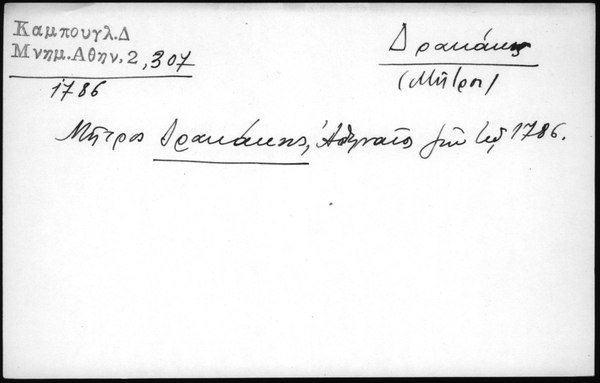 Καμπουγλ.Δ
Μνημ.Αθην.2,307
1786
Δρακάκης
(Μῆτρος)
Μῆτρος Δρακάκης, Ἀθηναῖος ζῶν τῷ 1786.